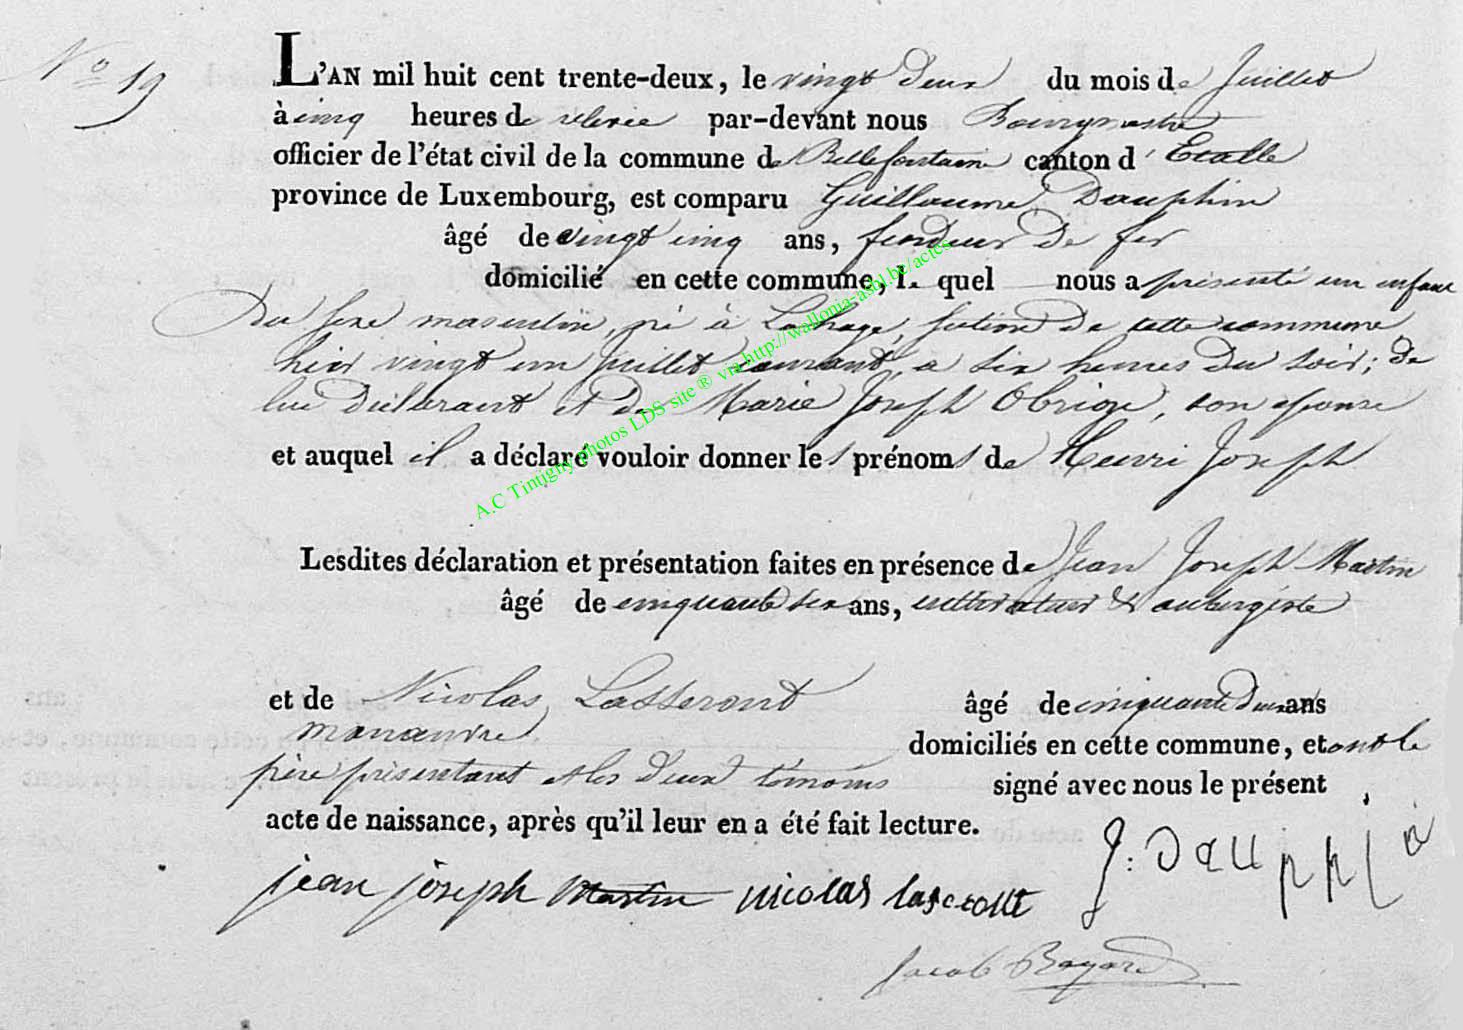 N° 19
L'AN mil huit cent trente-deux, le vingt deux du mois de Juillet
à cinq heures de relevée par-devant nous Bourgmestre
officier de l'état civil de la commune de Bellefontaine canton d'Etalle
province de Luxembourg, est comparu Guillaume Dauphin
âgé de vingt cinq ans, fondeur de fer
domicilié en cette commune, le quel nous a présenté un enfant
du sexe masculin, né à Lahage, section de cette commune
hier vingt un Juillet courant, a six heures du soir; de
lui déclarant et de Marie Joseph Obrion, son epouse
et auquel il a déclaré vouloir donner les prénoms de Henri Joseph
A.C Tintigny photos LDS site ® via http://wallonia-asbl.be/actes
Lesdites déclaration et présentation faites en présence de Jean Joseph Martin
âgé de cinquante six ans, cultivateur & aubergiste
et de Nicolas Lasseront âgé de cinquante deux ans
manœuvre domiciliés en cette commune, et ont le
père présentant et les deux témoins signé avec nous le présent
acte de naissance, après qu'il leur en a été fait lecture.
jean joseph Martin nicolas G: Dauphin
Jacob Bayard